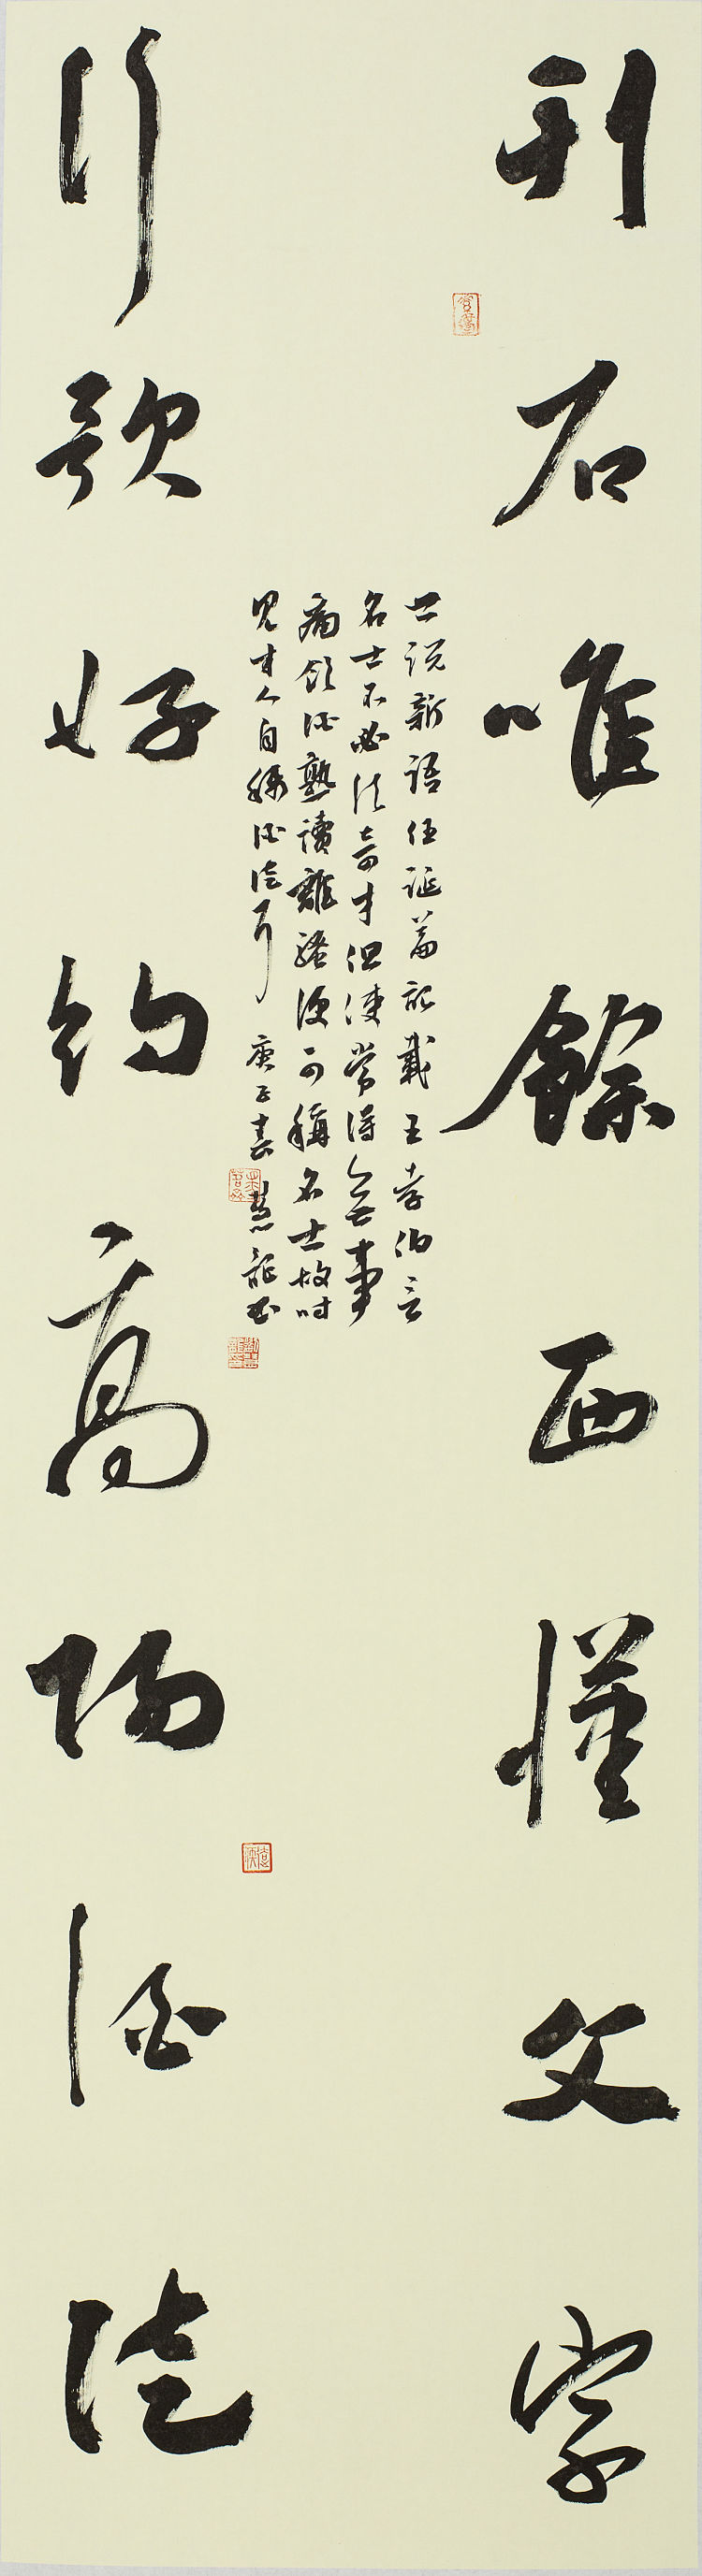 刊石唯餘西漢文字
世說新語任誕篇記載王孝伯言
名士不必須奇才但使常得無事
痛飲酒熟讀離騷便可稱名士故時
見才人自稱酒徒耳 庚子春 慧龍書
行歌好約高陽酒徒